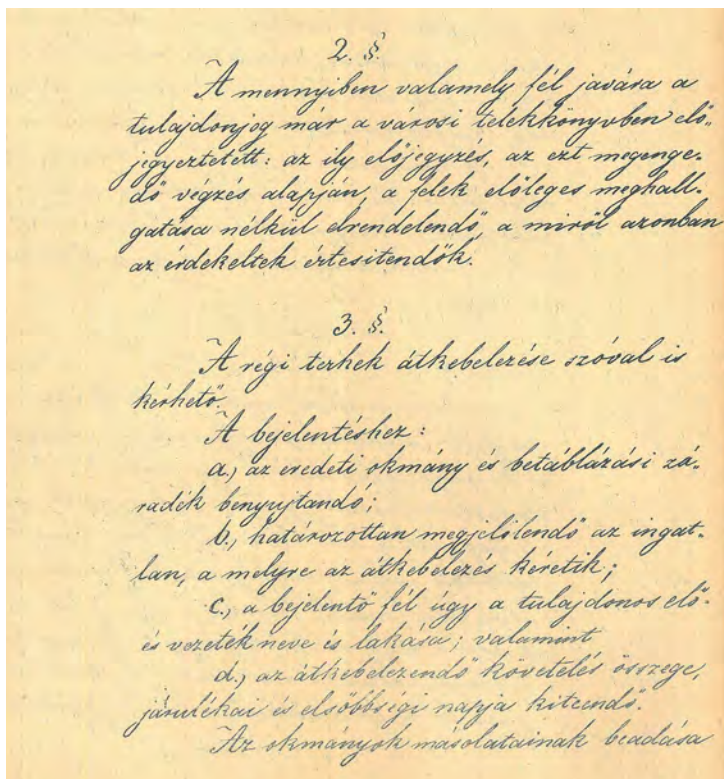 2. §.
A mennyiben valamely fél javára a
tulajdonjog már a városi telekkönyvben elő-
jegyeztetett: az ily előjegyzés, az ezt megenge-
dő végzés alapján, a felek előleges meghall-
gatása nélkül elrendelendő, a miről azonban
az érdekeltek értesitendők.
3. §.
A régi terhek átkebelezése szóval is
kérhető.
A bejelentéshez:
a., az eredeti okmány és betáblázási zá-
radék benyujtandó;
b., határozottan megjelölendő az ingat-
lan, a melyre az átkebelezés kéretik;
c., a bejelentő fél úgy a tulajdonos elő-
és vezeték neve és lakása; valamint
d., az átkebelezendő követelés összege,
járulékai és elsőbbségi napja kiteendő.
Az okmányok másolatainak beadása